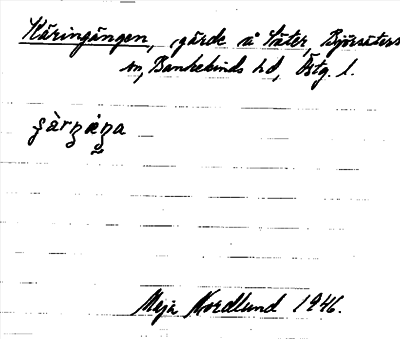 Käringängen, gärde å Säter, Björsäters
sn, Bankekinds hd, Östg. l.
Maja Nordlund 1946.